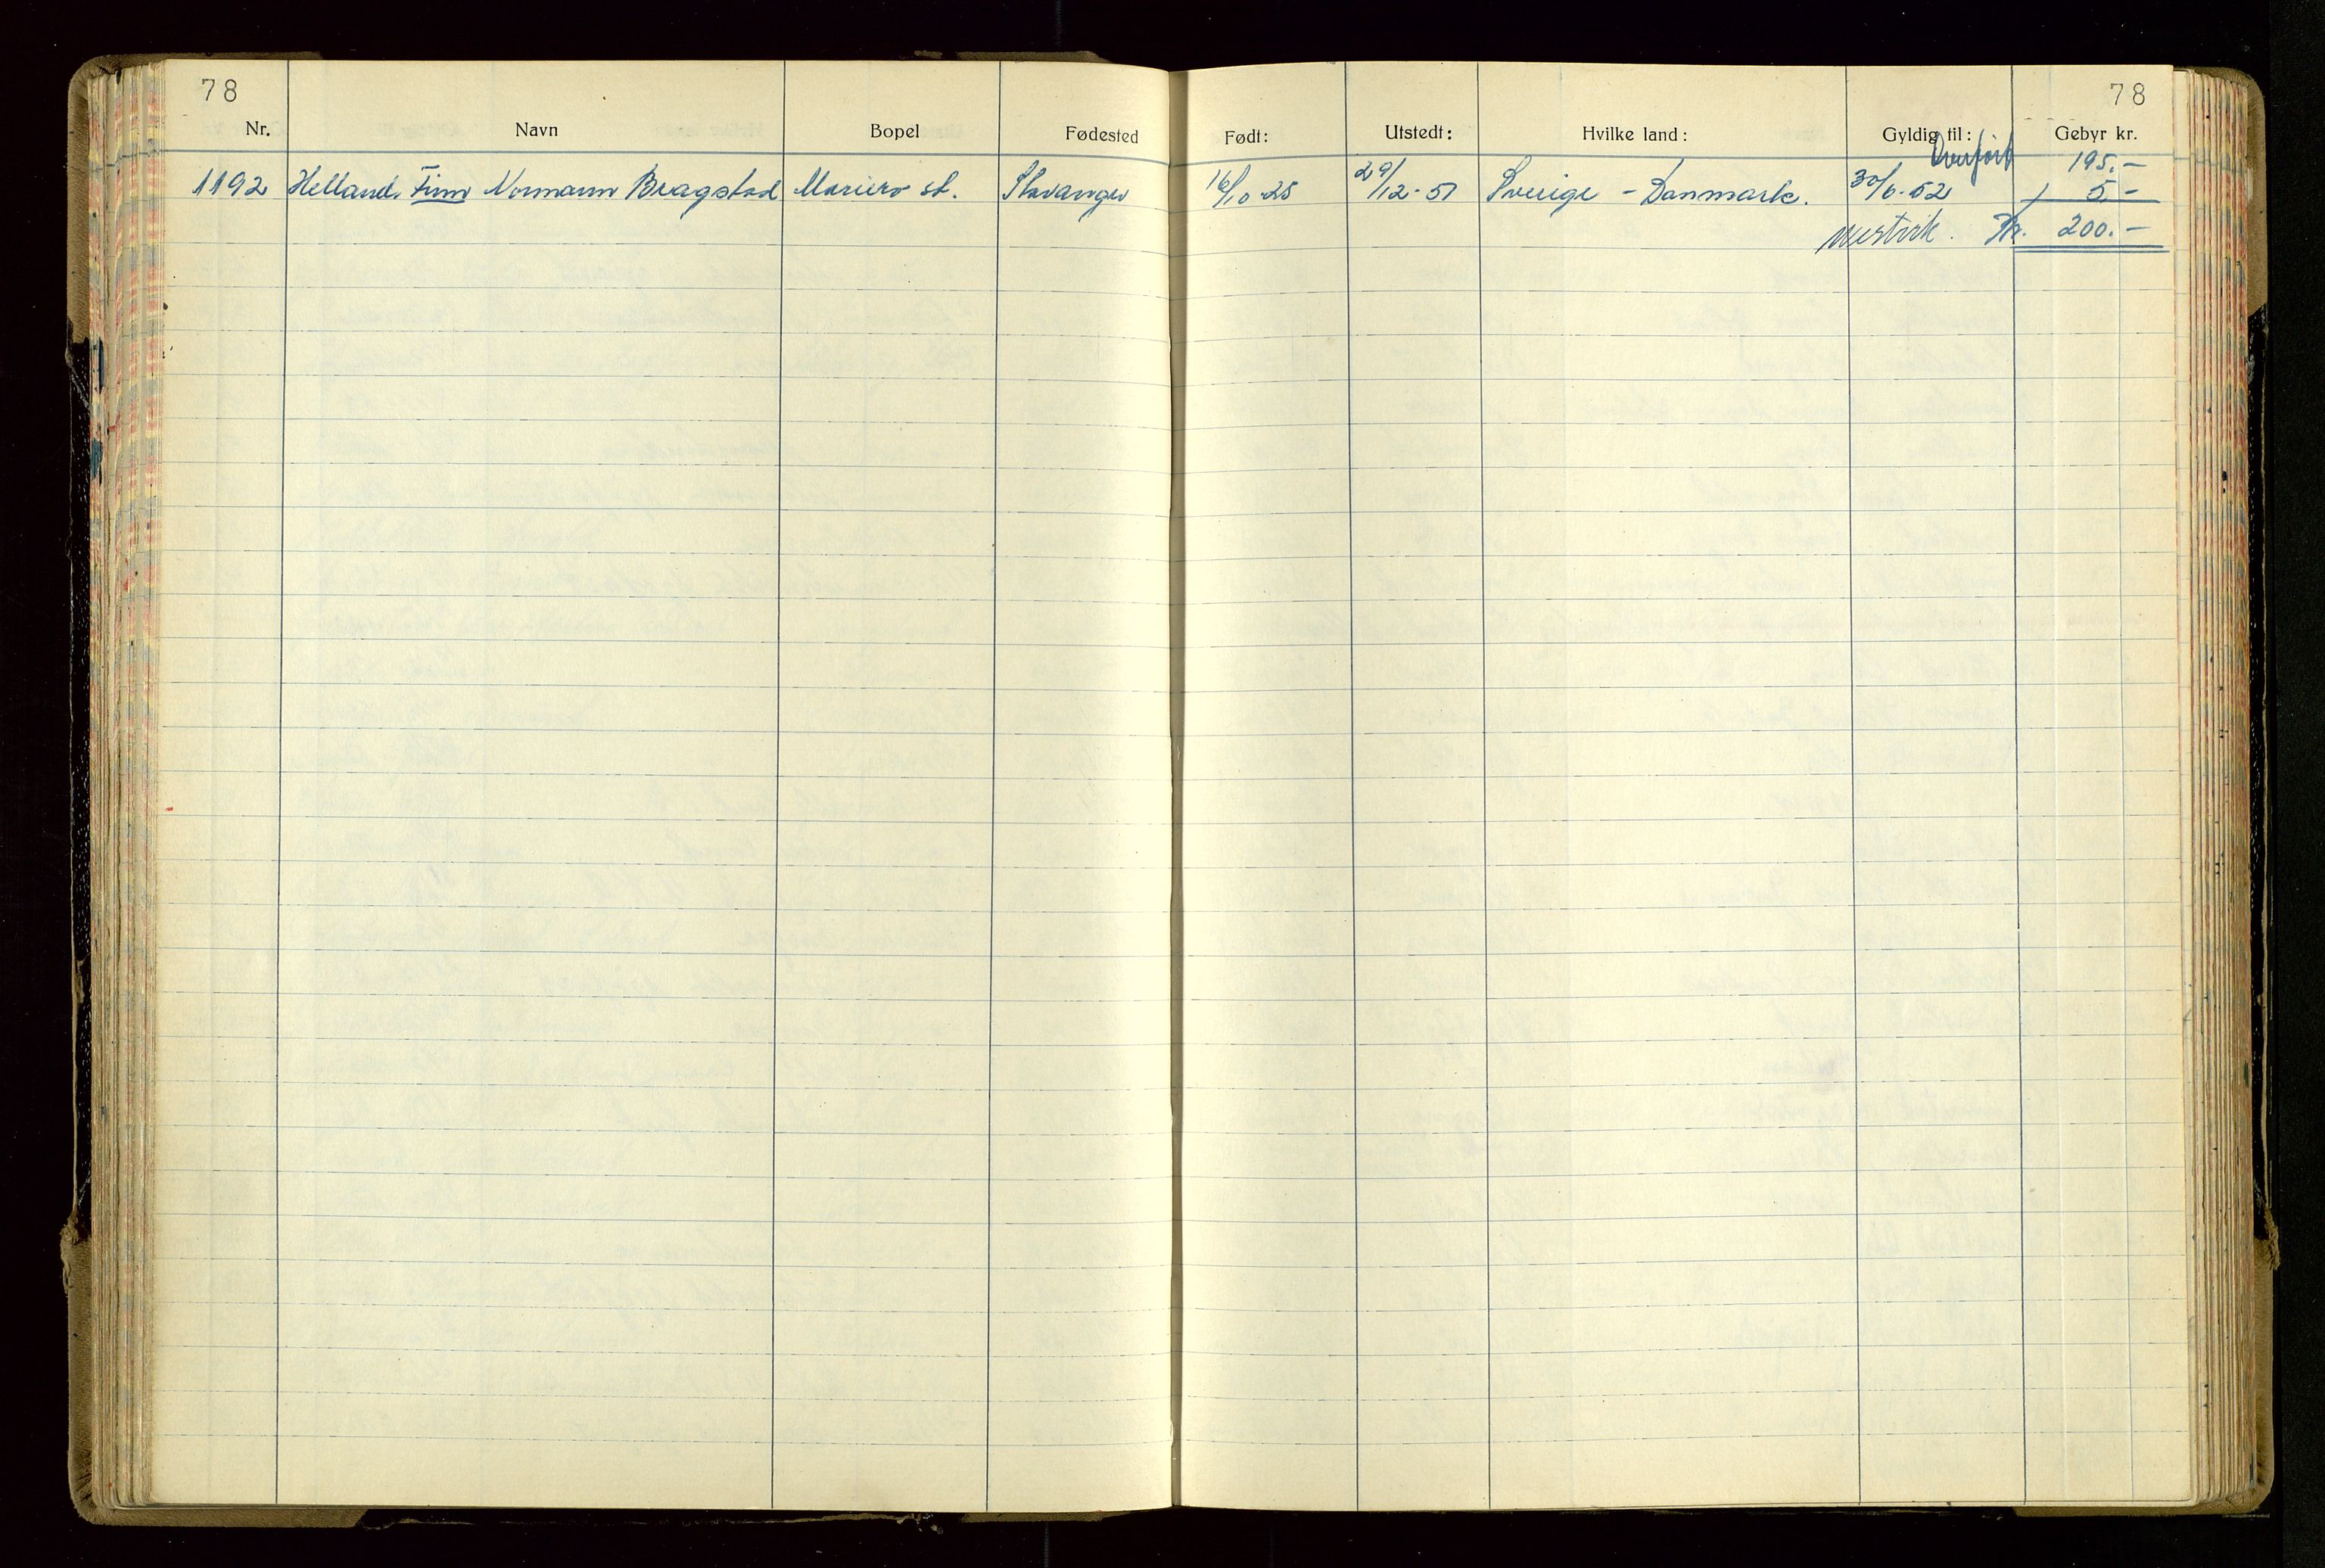 78
78
Nr. Navn Bopel Fødested Født: Utstedt: Hvilke land: Gyldig til: Gebyr kr.
Overført 195.-
1192 Helland, Finn Normann Bragstad Mariero st. Stavanger 16/10-25 29/12-51 Sverige - Danmark. 30/6-52 / 5.-
Kr. 200.-